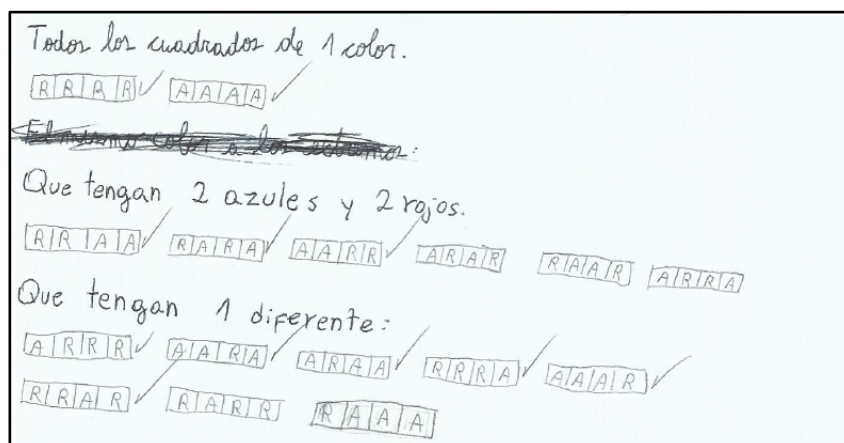 Todos los cuadrados de 1 color.
R R R R ✓ A A A A ✓
El mismo color a los extremos:
Que tengan 2 azules y 2 rojos.
R R A A ✓ R A R A ✓ A A R R ✓ A R A R R A A R A R R A
Que tengan 1 diferente:
A R R R ✓ A A R A ✓ A R A A ✓ R R R A ✓ A A A R ✓
R R A R ✓ R A R R R A A A